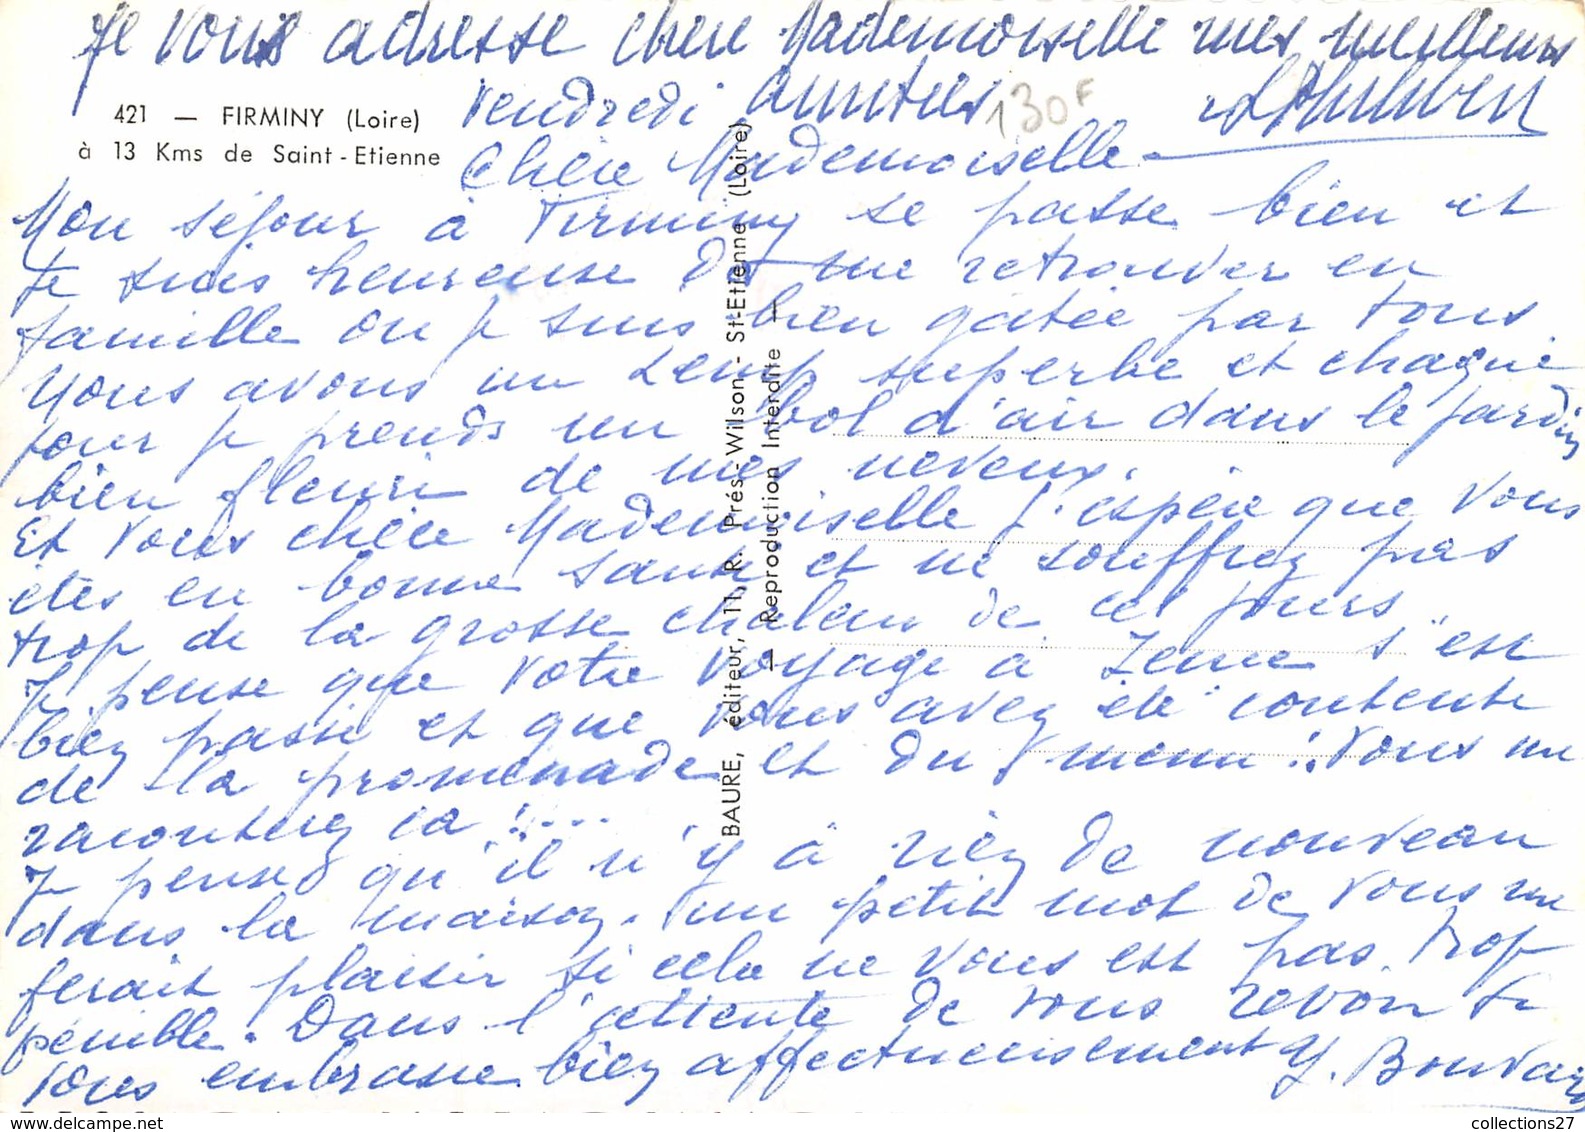 Je vous adresse chère Mademoiselle mes meilleurs
amitiés
130F
421 — FIRMINY (Loire)
à 13 Kms de Saint-Etienne
Vendredi
Chère Mademoiselle
Mon séjour à Firminy se passe bien et
je suis heureuse de me retrouver en
famille ou je suis bien gâtée par tous.
Nous avons un temp superbe et chaque
jour je prends un bol d'air dans le jardin
bien fleuri de mes neveux.
Et vous chère Mademoiselle j'espère que vous
êtes en bonne santé et ne souffrez pas
trop de la grosse chaleur de ces jours.
Je pense que votre voyage à s'est
bien passé et que vous avez été contente
de la promenade et du menu ! Vous me
raconterez ça !...
Je pense qu'il n'y a rien de nouveau
dans la maison. un petit mot de vous me
ferait plaisir si cela ne vous est pas trop
pénible. Dans l'attente de vous revoir je
vous embrasse bien affectueusement Y. Bouvard
BAURE, éditeur, 11, R. Prés.-Wilson - St-Etienne (Loire)
— Reproduction Interdite —
collections27